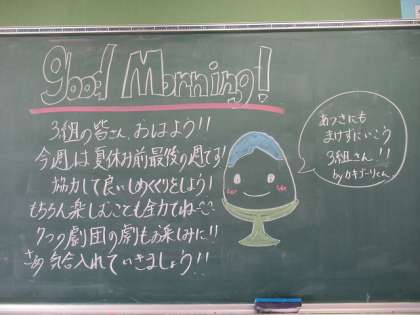 good Morning!
3組の皆さん、おはよう!!
今週は夏休み前最後の週です!
協力して良いしめくくりをしよう!
もちろん楽しむことも全力でね〜
7つの劇団の劇もお楽しみに!!
さあ気合入れていきましょう!!
あつさにも
まけずにいこう
3組さん!!
byカキゴーリくん